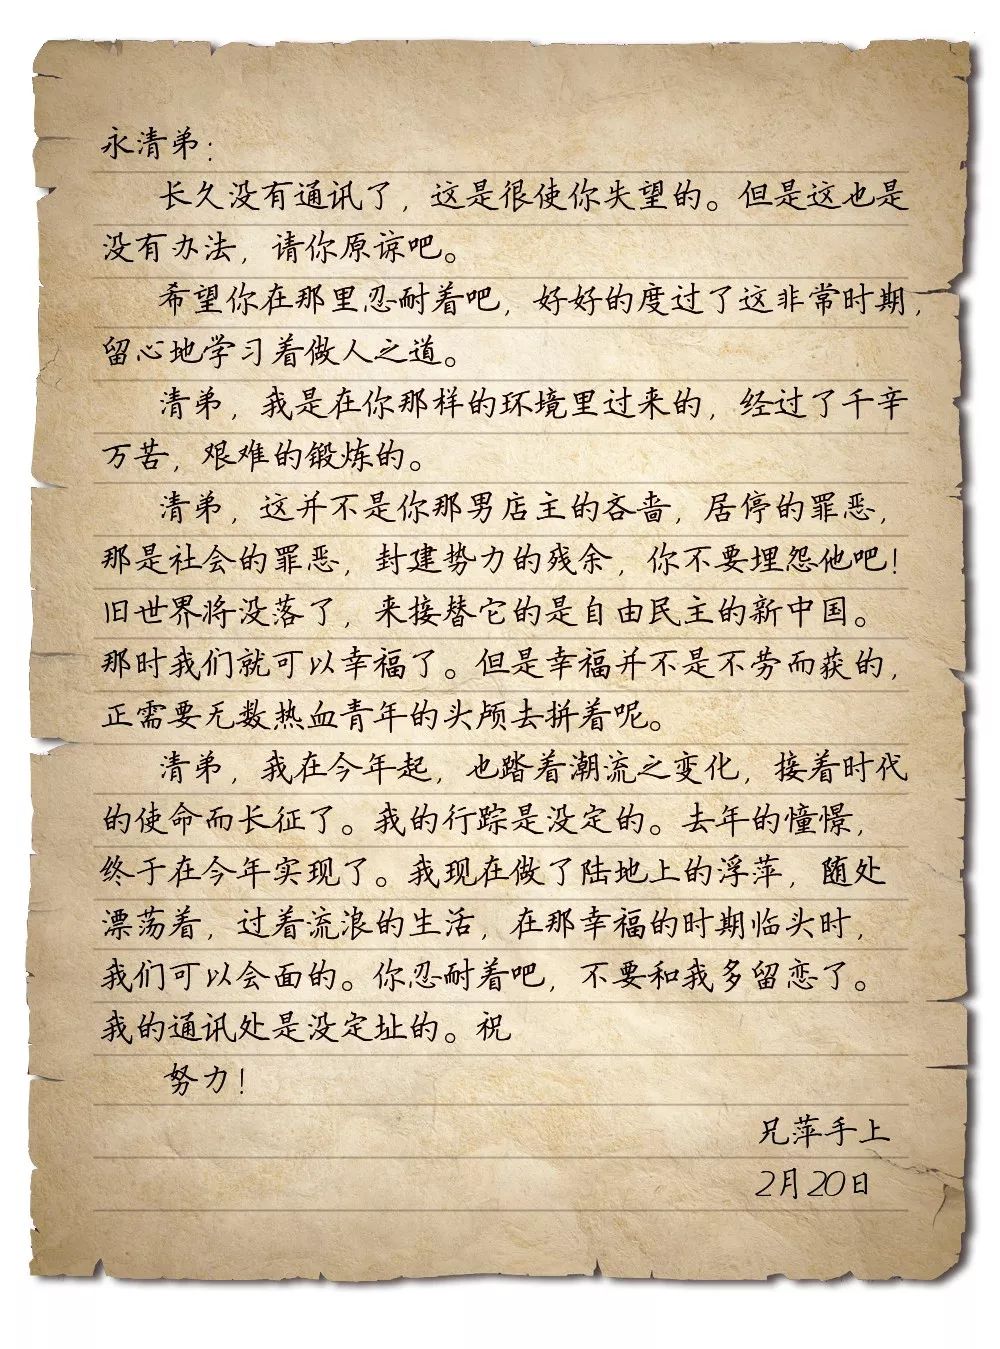 永清弟：
长久没有通讯了，这是很使你失望的。但是这也是
没有办法，请你原谅吧。
希望你在那里忍耐着吧，好好的度过了这非常时期，
留心地学习着做人之道。
清弟，我是在你那样的环境里过来的，经过了千辛
万苦，艰难的锻炼的。
清弟，这并不是你那男店主的吝啬，居停的罪恶，
那是社会的罪恶，封建势力的残余，你不要埋怨他吧！
旧世界将没落了，来接替它的是自由民主的新中国。
那时我们就可以幸福了。但是幸福并不是不劳而获的，
正需要无数热血青年的头颅去拼着呢。
清弟，我在今年起，也踏着潮流之变化，接着时代
的使命而长征了。我的行踪是没定的。去年的憧憬，
终于在今年实现了。我现在做了陆地上的浮萍，随处
漂荡着，过着流浪的生活，在那幸福的时期临头时，
我们可以会面的。你忍耐着吧，不要和我多留恋了。
我的通讯处是没定址的。祝
努力！
兄萍手上
2月20日